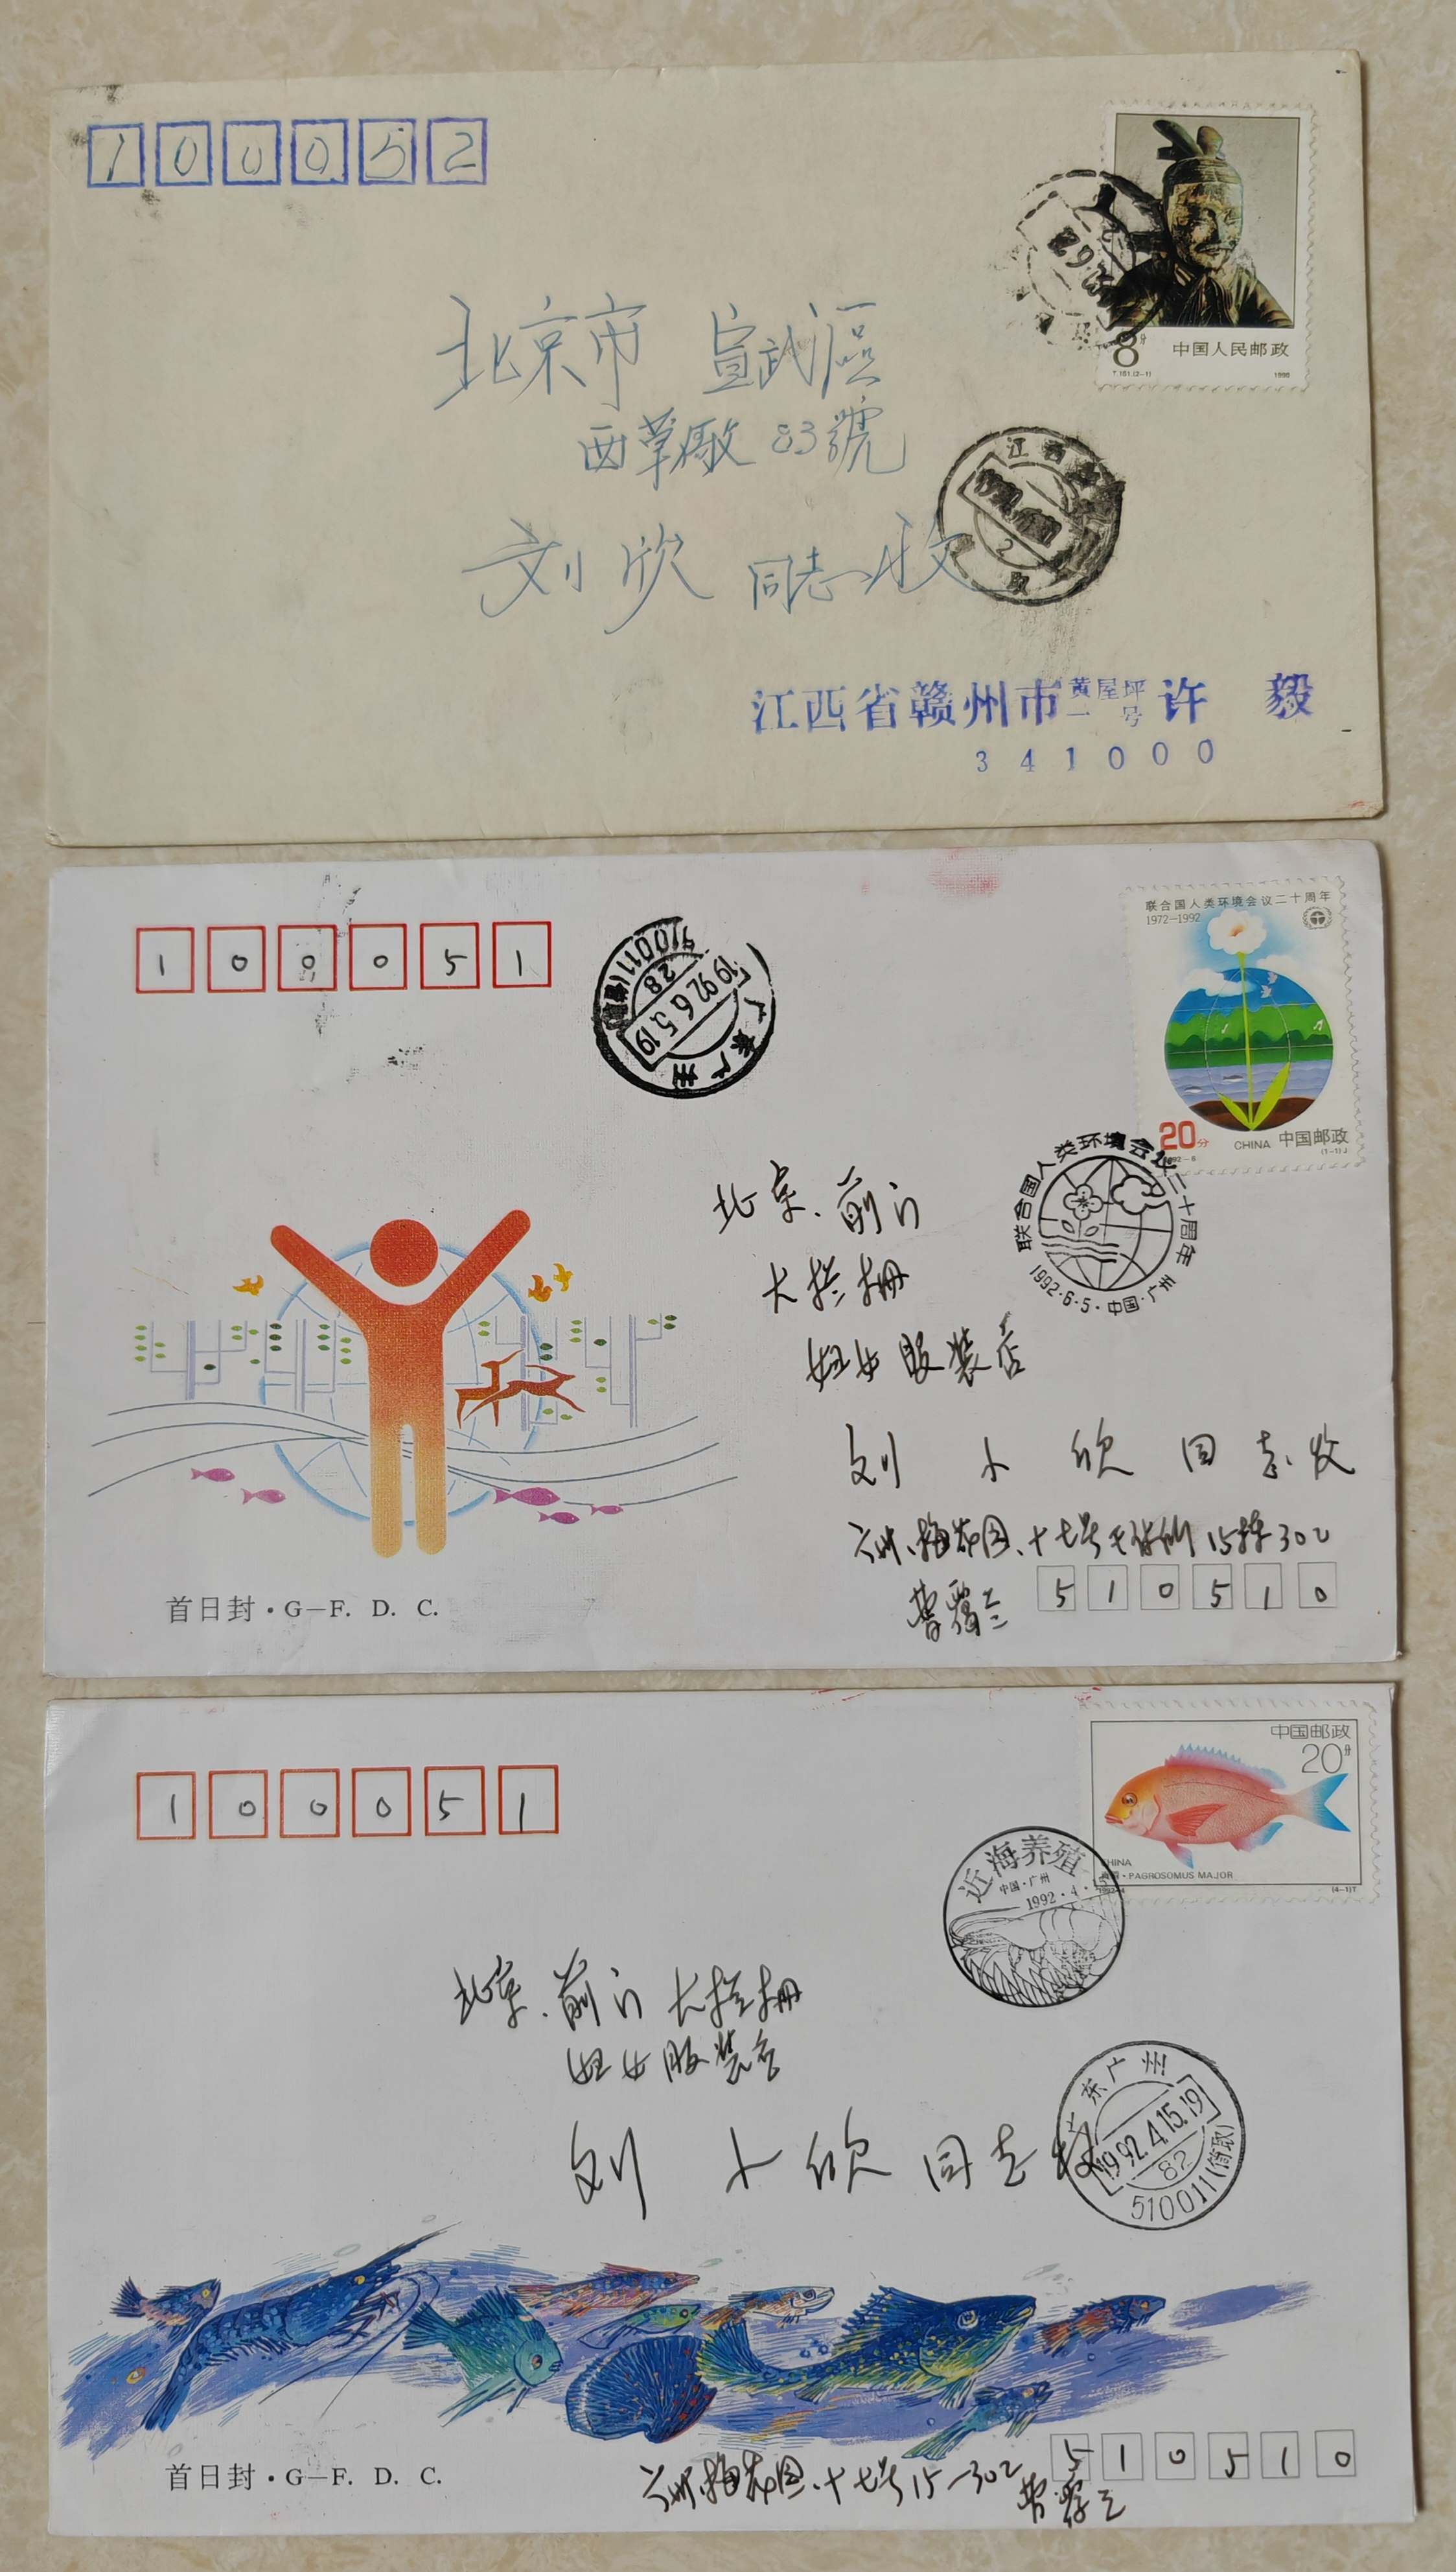 100052
8分 中国人民邮政
T.161.(2-1) 1990
北京市 宣武區
西草廠 83號
刘欣 同志收
江西
2
江西省赣州市黄屋坪一号 许 毅
341000
100051
广东广州
1992.6.5.19
28
510011(筒取)
联合国人类环境会议二十周年
1972-1992
20分 CHINA 中国邮政
1992-6 (1-1)J
联合国人类环境会议二十周年
1992·6·5·中国·广州
北京.前门
大栏栅
妇女服装店
刘 小 欣 同志收
广州.梅花园.十七号 15栋302
曹 510510
首日封·G-F. D. C.
100051
中国邮政
20分
CHINA
·PAGROSOMUS MAJOR
1992-4 (4-1)T
近海养殖
中国·广州
1992·4·
北京.前门大栏栅
妇女服装店
刘 小 欣 同志收
广东广州
1992.4.15.19
82
510011(筒取)
首日封·G-F. D. C.
广州.梅花园.十七号15-302
曹 510510